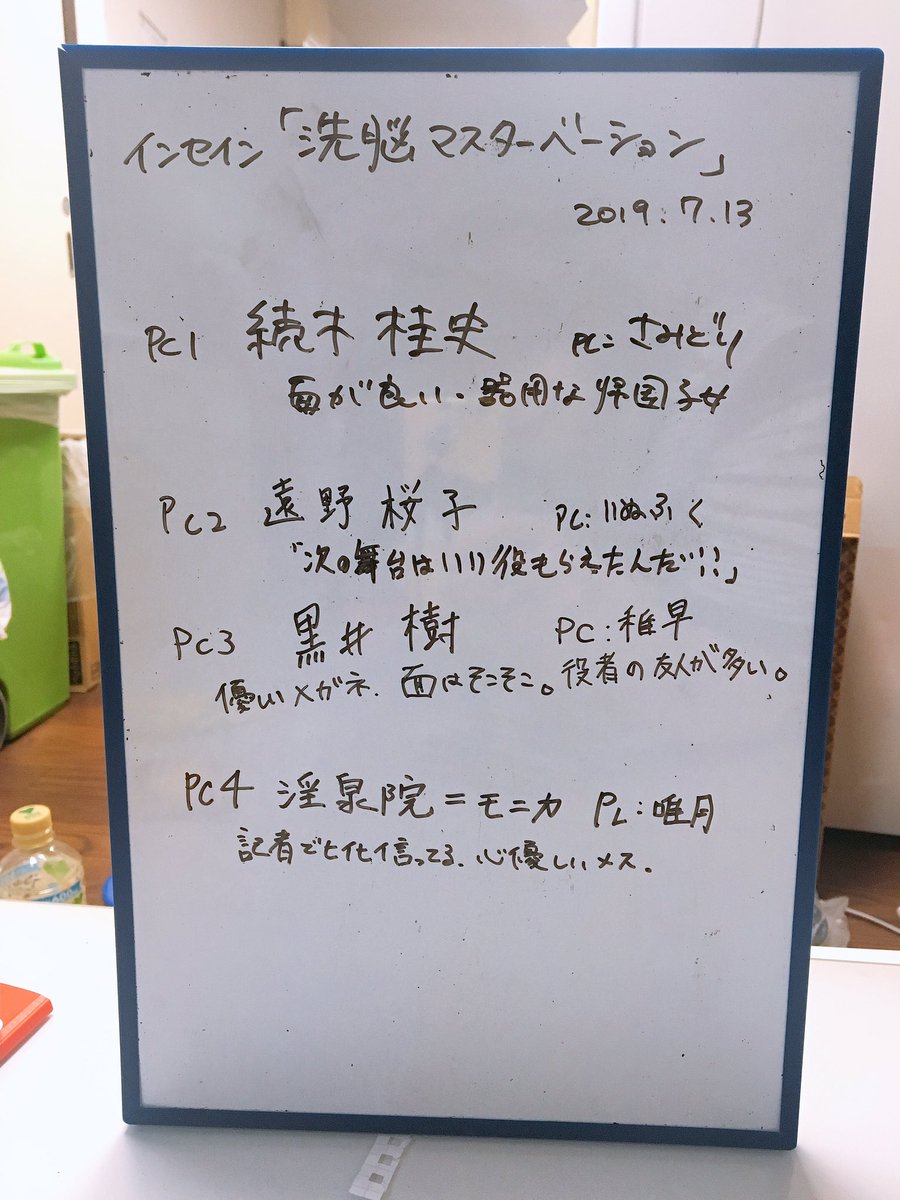 インセイン「洗脳マスターベーション」
2019.7.13
PC1 続木 桂史 PL:さみどり
面が良い・器用な帰国子女
PC2 遠野 桜子 PL:いぬふく
「次の舞台はいい役もらえたんだ!!」
PC3 黒井 樹 PC:稚早
優しいメガネ、面はそこそこ。役者の友人が多い。
PC4 淫泉院=モニカ PL:唯月
記者でヒイヒイ言ってる、心優しいメス。